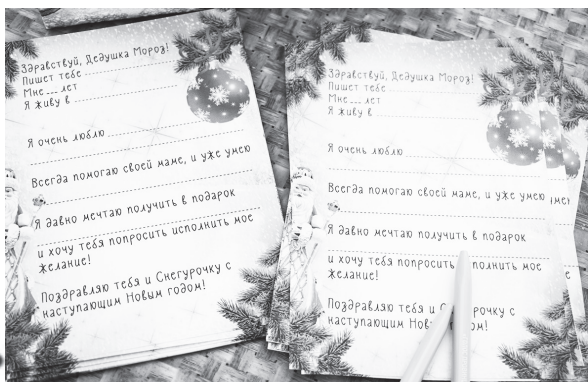 Здравствуй, Дедушка Мороз!
Пишет тебе
Мне лет
Я живу в
Я очень люблю
Всегда помогаю своей маме, и уже умею
Я давно мечтаю получить в подарок
и хочу тебя попросить исполнить мое
желание!
Поздравляю тебя и Снегурочку с
наступающим Новым годом!
Здравствуй, Дедушка Мороз!
Пишет тебе
Мне лет
Я живу в
Я очень люблю
Всегда помогаю своей маме, и уже умею
Я давно мечтаю получить в подарок
и хочу тебя попросить полнить мое
желание!
Поздравляю тебя и С рочку с
наступающим Нов ом!